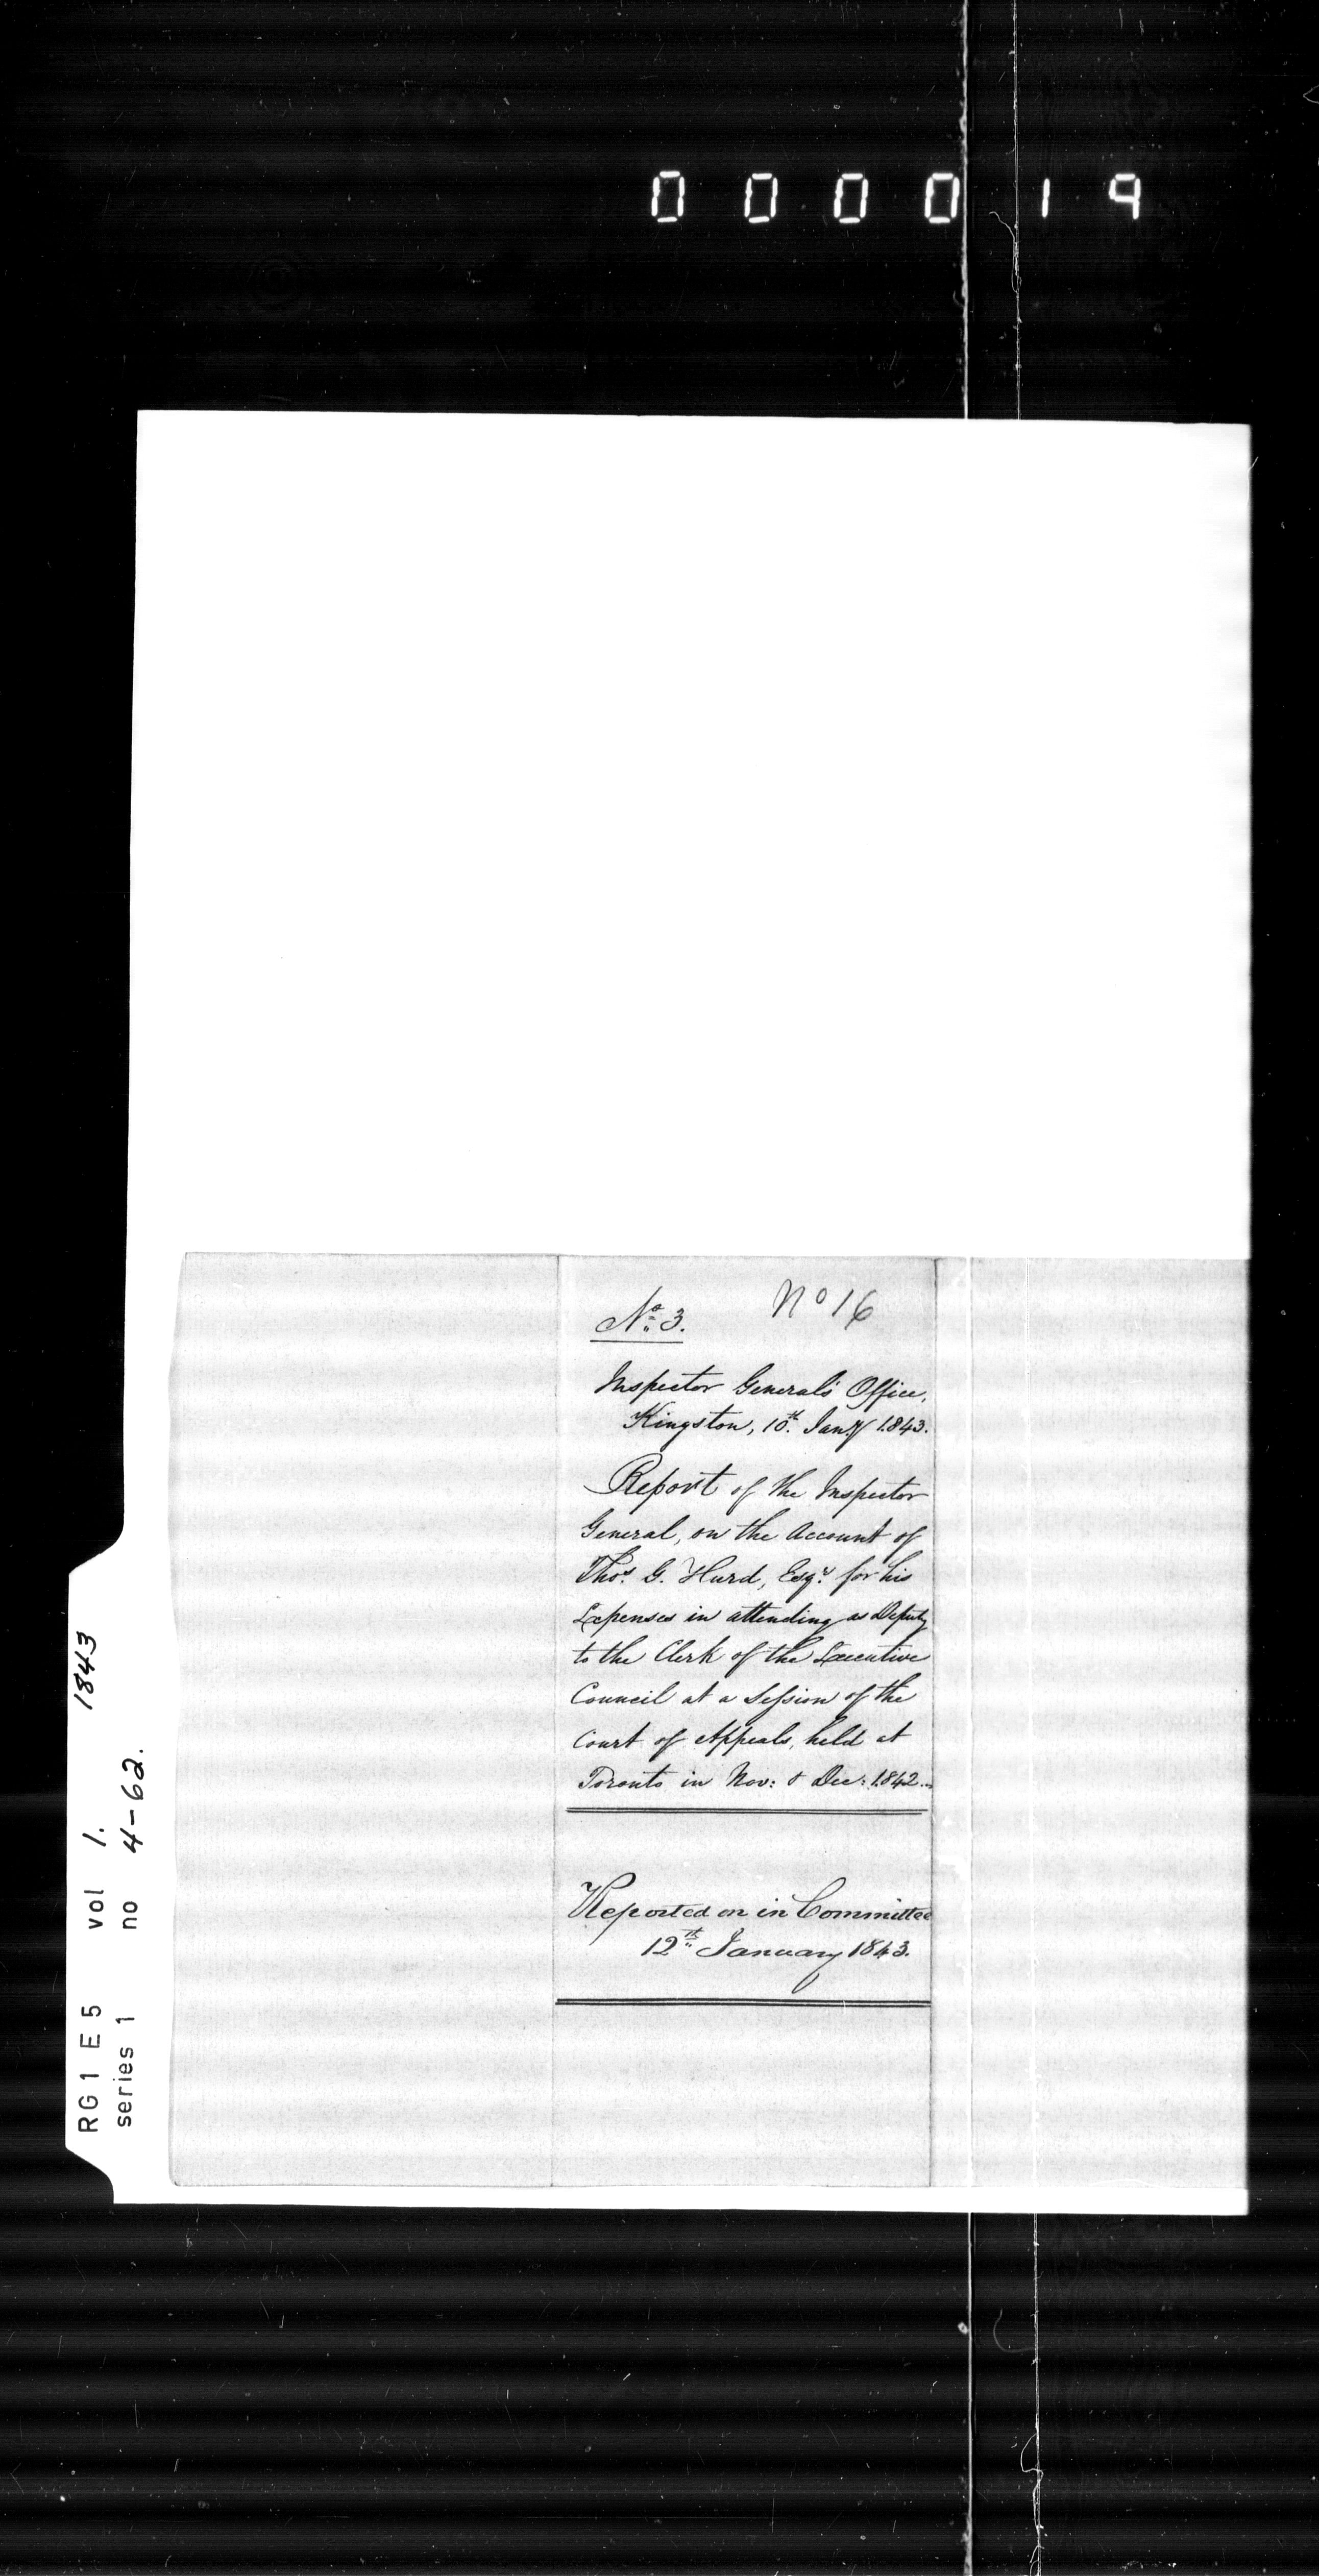 0 0 0 0 1 9
No. 3.
No 16
Inspector General's Office,
Kingston, 10th. Jany 1843.
Report of the Inspector
General, on the Account of
Thos. G. Hurd, Esqr. for his
Expenses in attending as Deputy
to the Clerk of the Executive
Council at a Session of the
Court of Appeals, held at
Toronto in Nov: & Dec: 1842.
Reported on in Committee
12th January 1843.
RG1 E5 vol 1. 1843
series 1 no 4-62.